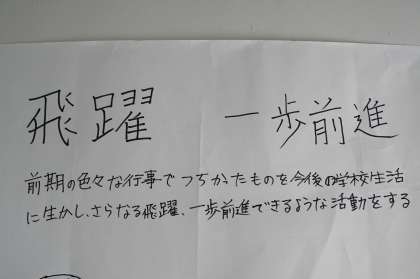 飛躍 一歩前進
前期の色々な行事でつちかったものを今後の学校生活
に生かし、さらなる飛躍、一歩前進できるような活動をする